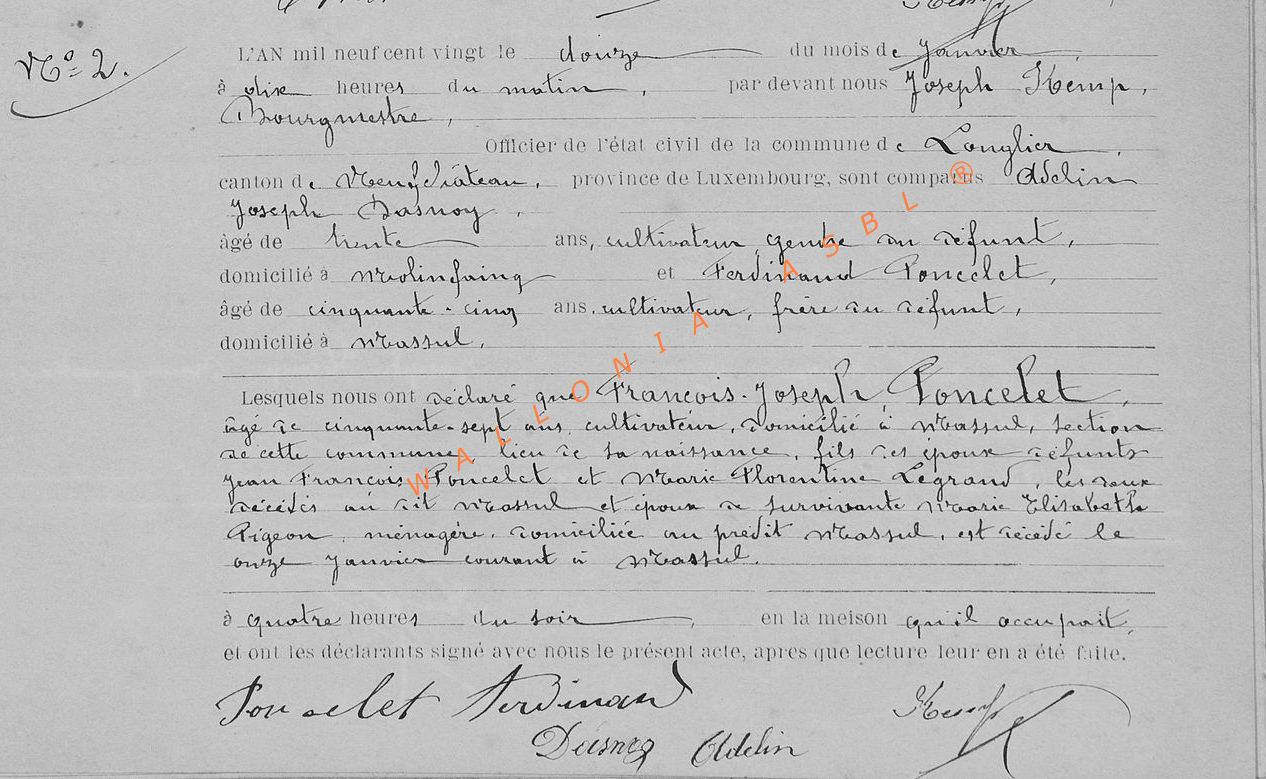 Nº 2.
L'AN mil neuf cent vingt le douze du mois de Janvier
à dix heures du matin, par devant nous Joseph Kemp,
Bourgmestre,
Officier de l'état civil de la commune de Longlier,
canton de Neufchâteau, province de Luxembourg, sont comparus Adelin
Joseph Dasnoy,
âgé de trente ans, cultivateur, gendre du défunt,
domicilié à Molinfaing et Ferdinand Poncelet,
âgé de cinquante-cinq ans, cultivateur, frère du défunt,
domicilié à Massul,
Lesquels nous ont déclaré que François-Joseph Poncelet,
âgé de cinquante-sept ans, cultivateur, domicilié à Massul, section
de cette commune, lieu de sa naissance, fils des époux défunts
Jean François Poncelet et Marie Florentine Legrand, les deux
décédés au dit Massul et époux de survivante Marie Elisabeth
Pigeon, ménagère, domiciliée au prédit Massul, est décédé le
onze Janvier courant à Massul.
à quatre heures du soir, en la meison qu'il occupait,
et ont les déclarants signé avec nous le présent acte, apres que lecture leur en a été faite.
Poncelet Ferdinand Kemp
Dasnoy Adelin
WALLONIA ASBL ®